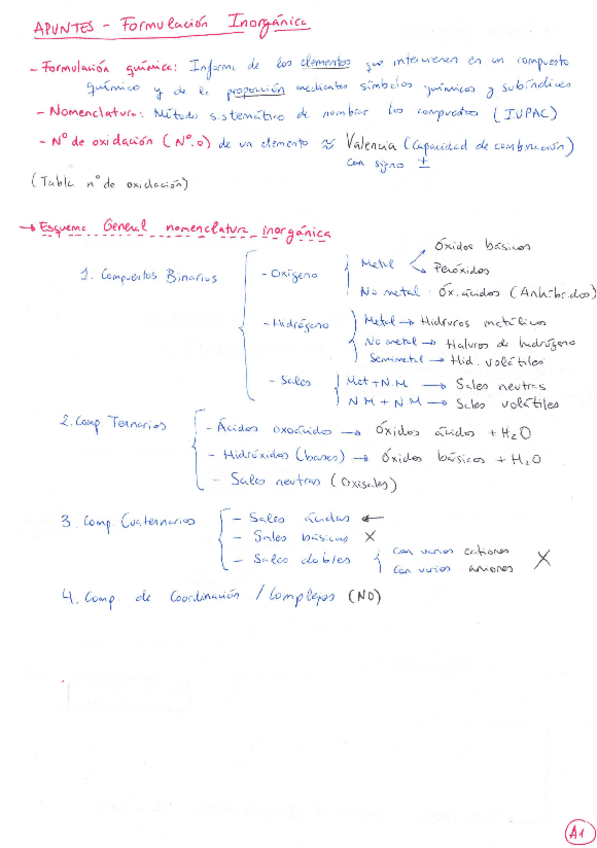 APUNTES - Formulación Inorgánica
- Formulación química: Informa de los elementos que intervienen en un compuesto
químico y de la proporción mediantes símbolos químicos y subíndices
- Nomenclatura: Método sistemático de nombrar los compuestos (IUPAC)
- Nº de oxidación (Nº.o) de un elemento ≈ Valencia (Capacidad de combinación)
con signo ±
(Tabla nº de oxidación)
→ Esquema General nomenclatura inorgánica
1. Compuestos Binarios
- Oxígeno
Metal
Óxidos básicos
Peróxidos
No metal · Óx. ácidos (Anhíbridos)
- Hidrógeno
Metal → Hidruros metálicos
No metal → Haluros de hidrógeno
Semimetal → Hid. volátiles
- Sales
Met + N.M → Sales neutras
NM + NM → Sales volátiles
2. Comp Ternarios
- Ácidos oxoácidos → óxidos ácidos + H₂O
- Hidróxidos (bases) → óxidos básicos + H₂O
- Sales neutras (Oxisales)
3. Comp. Cuaternarios
- Sales ácidas ←
- Sales básicas X
- Sales dobles
con varios cationes
con varios aniones
X
4. Comp. de Coordinación / Complejos (NO)
A1